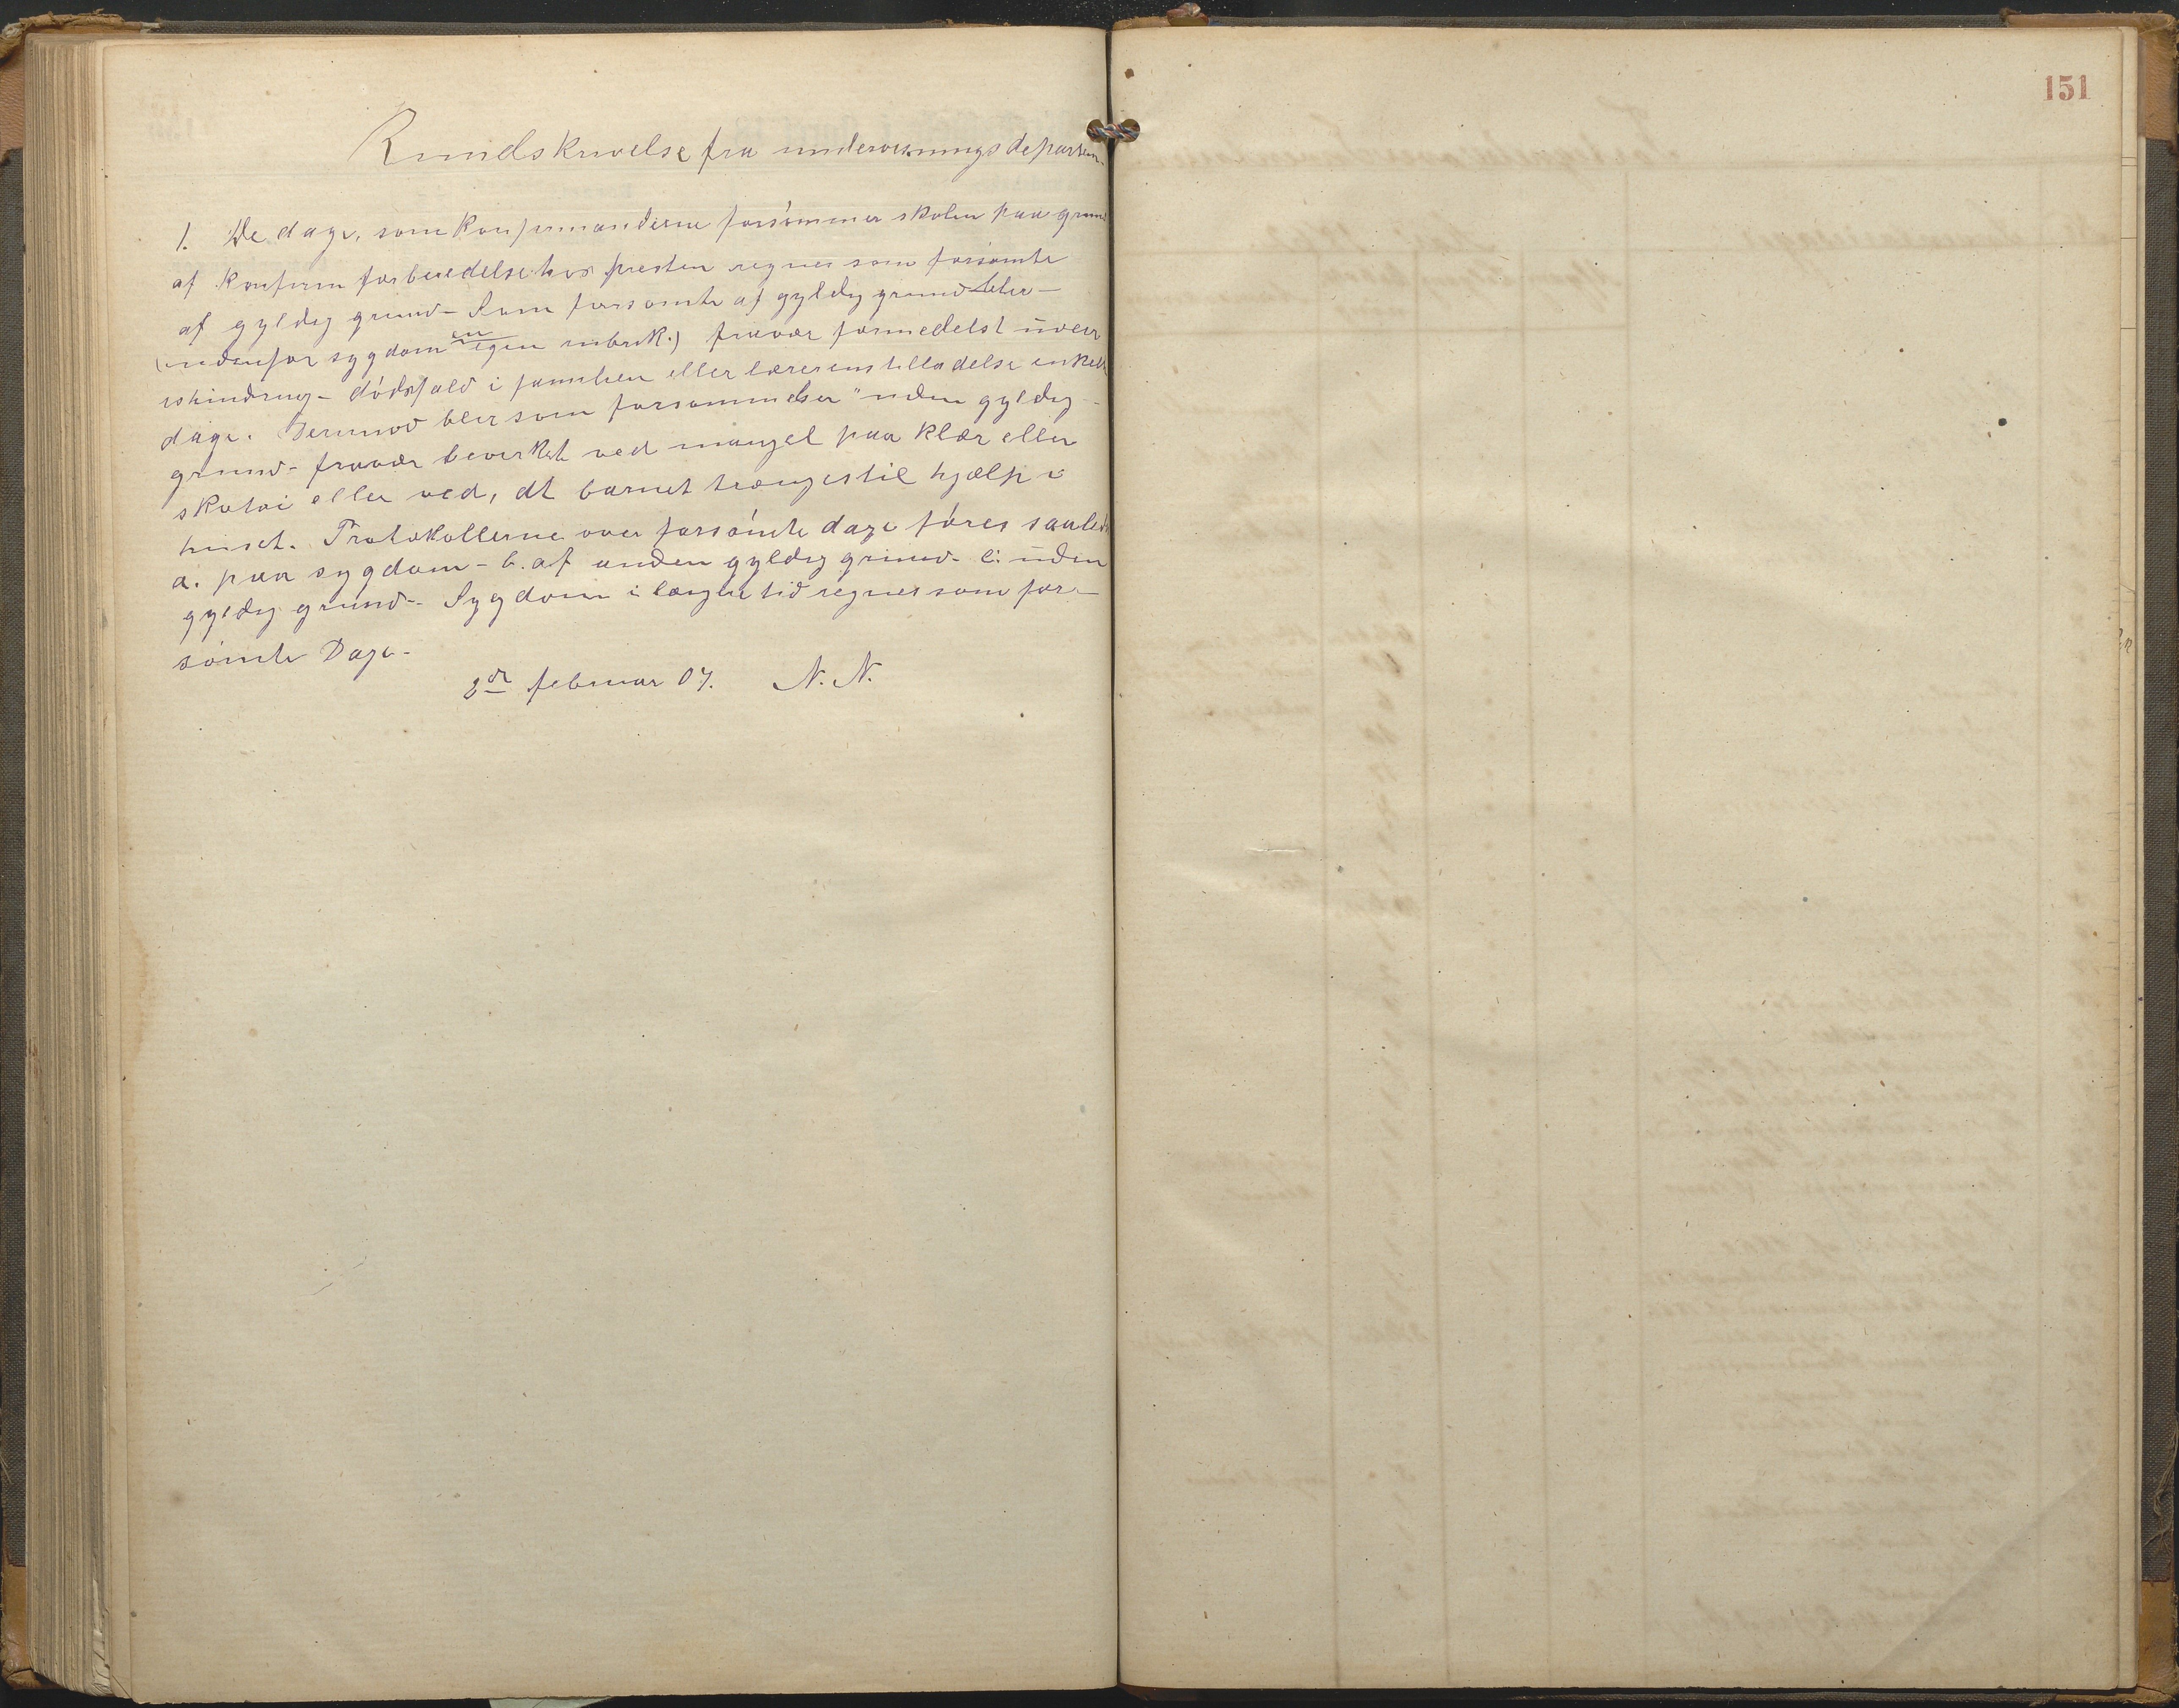 151
Rundskrivelse fra undervisningsdepartem.
1. De dage, som konfirmanderne forsómmer skolen paa grund
af konfirm forberedelse hos presten regnes som forsómte
af gyldig grund – Som forsómte af gyldig grund blir –
(udenfor sygdom en egen rubrik.) fravær formedelst uveir
ishindring – dódsfald i familien eller lærerens tilladelse enkelte
dage. Derimod blir som forsómmelser "uden gyldig
grund – fravær bevirket ved mangel paa klær eller
skotøi eller ved, at barnet trænges til hjælp i
huset. Protokollerne over forsómte dage fóres saaledes
a. paa sygdom – b. af anden gyldig grund – c: uden
gyldig grund – Sygdom i længere tid regnes som for-
sómte Dage –
2de februar 07. N. N.